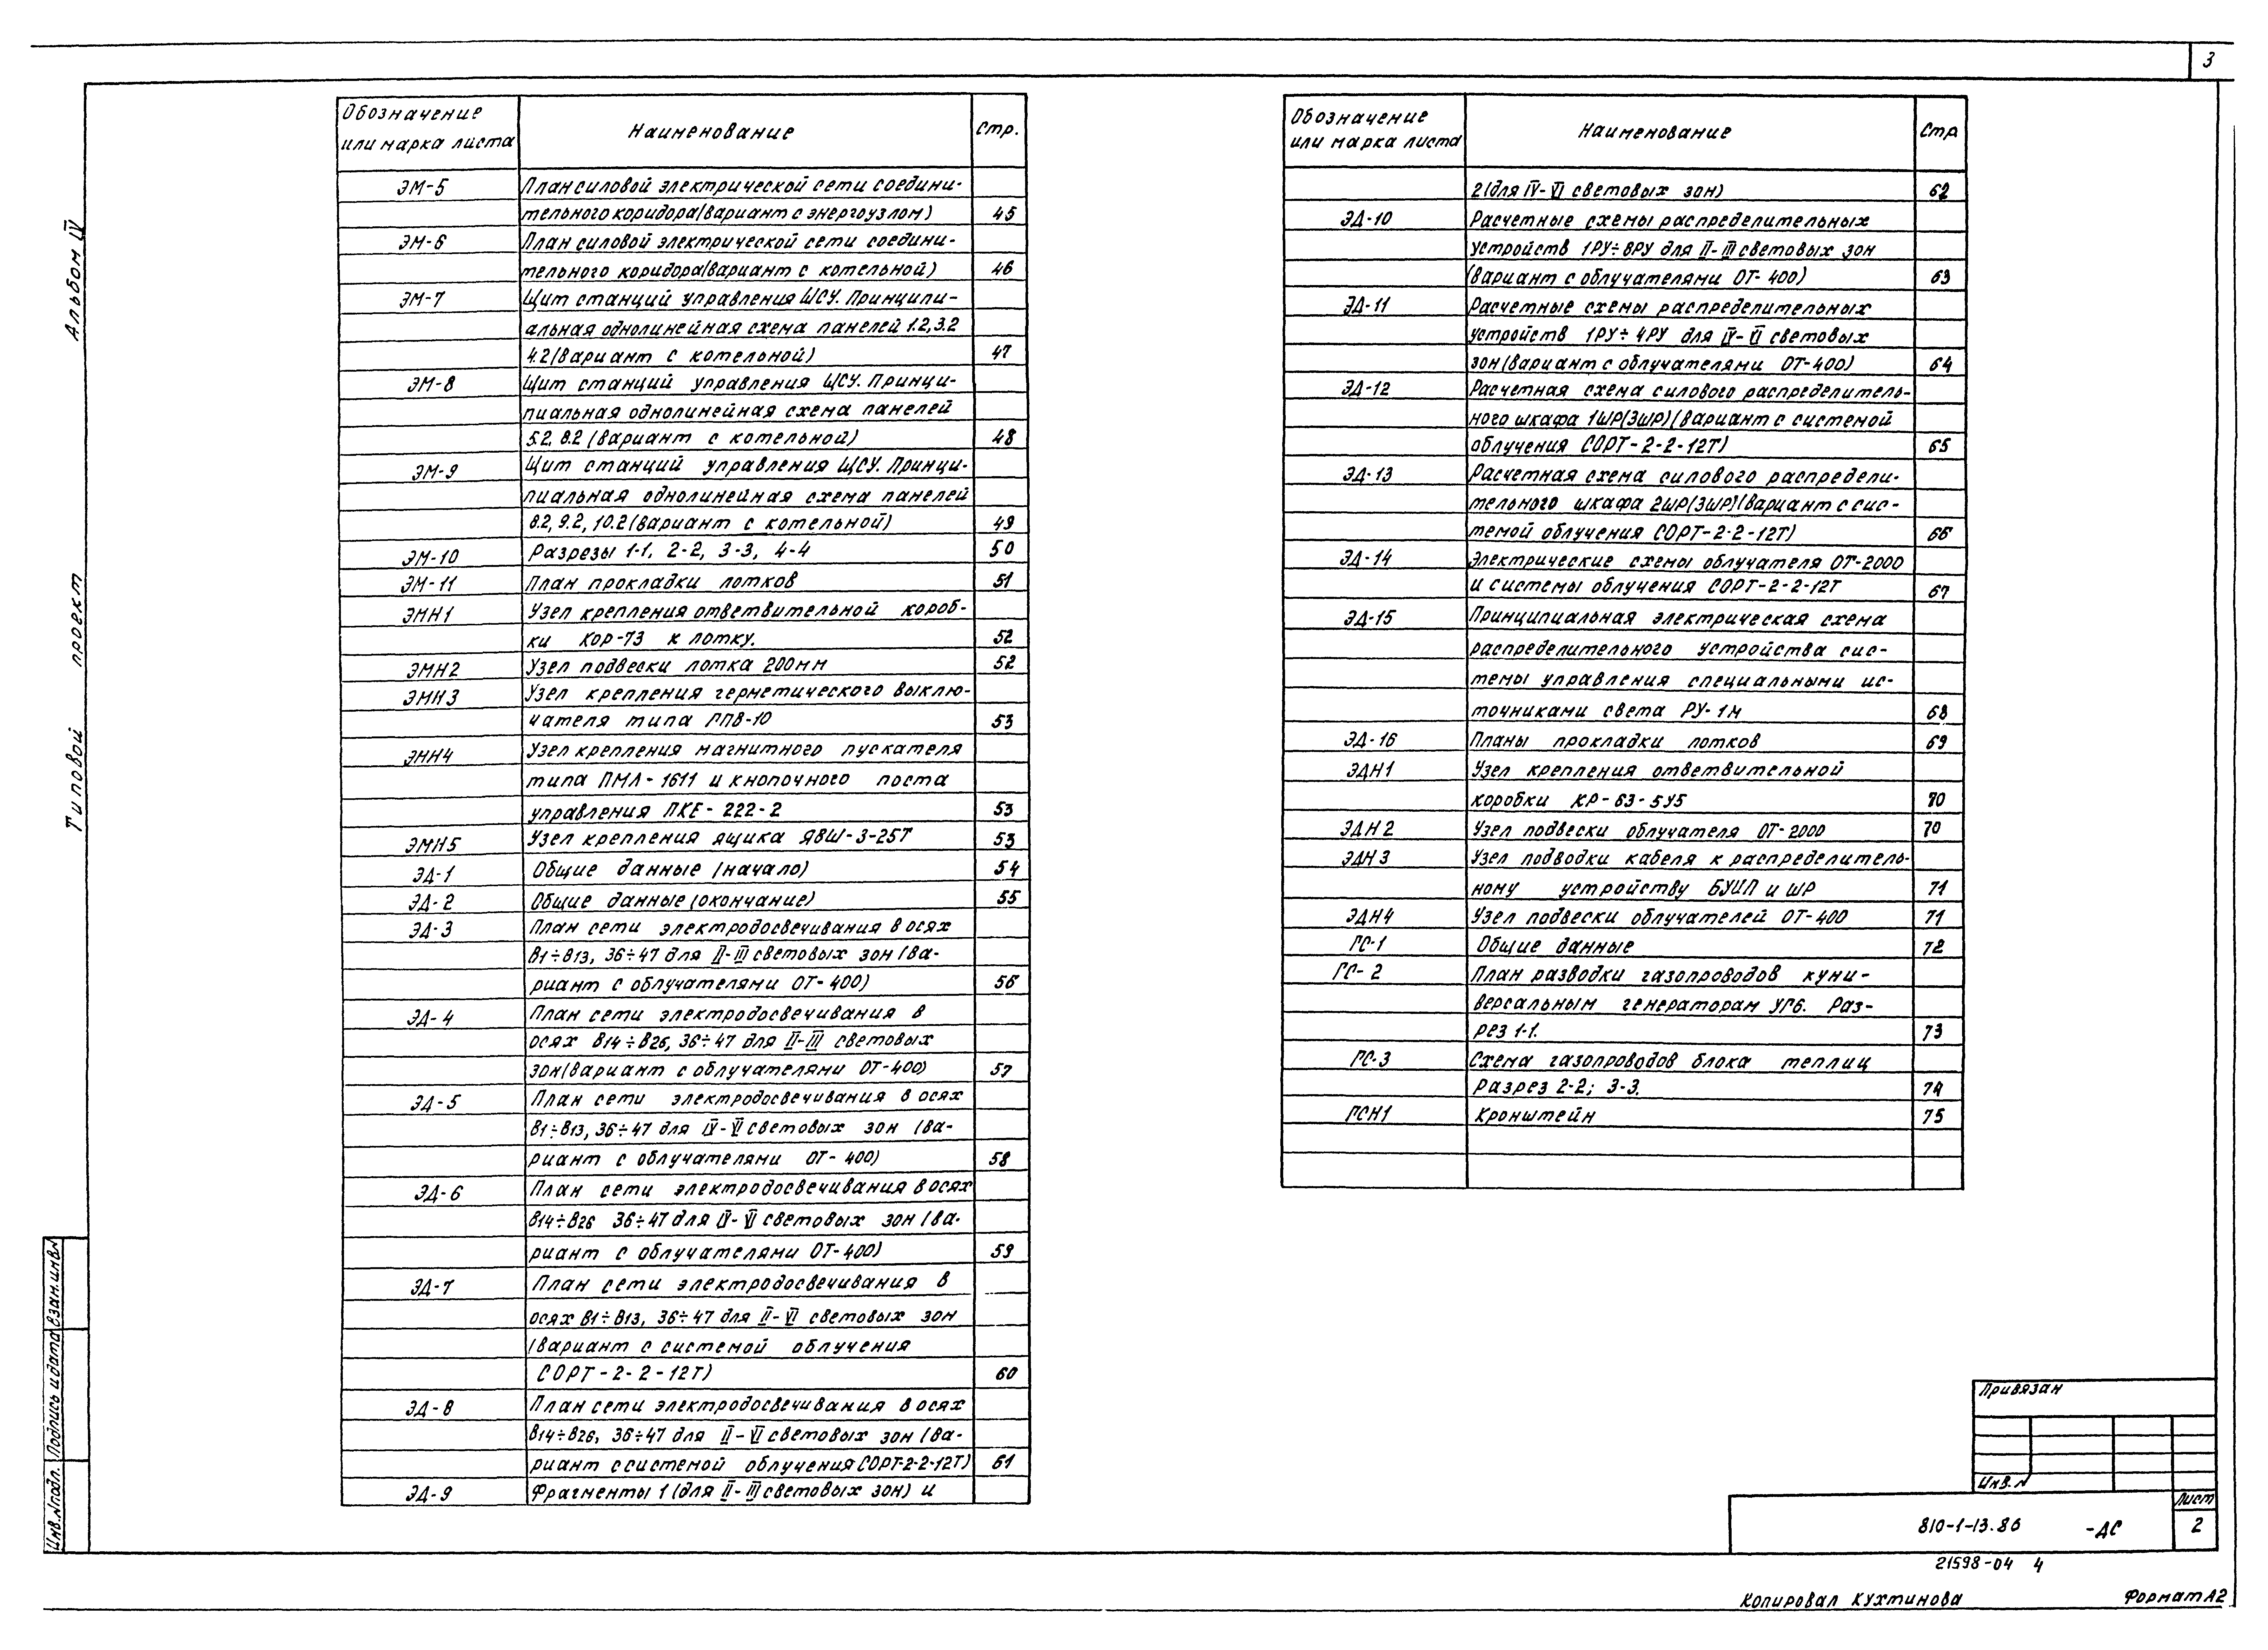 3
Альбом IV
Типовой проект
Обозначение или марка листа Наименование Стр.
ЭМ-5 План силовой электрической сети соедини-
тельного коридора (вариант с энергоузлом) 45
ЭМ-6 План силовой электрической сети соедини-
тельного коридора (вариант с котельной) 46
ЭМ-7 Щит станций управления ЩСУ. Принципи-
альная однолинейная схема панелей 1.2, 3.2
4.2 (вариант с котельной) 47
ЭМ-8 Щит станций управления ЩСУ. Принци-
пиальная однолинейная схема панелей
5.2, 8.2 (вариант с котельной) 48
ЭМ-9 Щит станций управления ЩСУ. Принци-
пиальная однолинейная схема панелей
8.2, 9.2, 10.2 (вариант с котельной) 49
ЭМ-10 Разрезы 1-1, 2-2, 3-3, 4-4 50
ЭМ-11 План прокладки лотков 51
ЭМН1 Узел крепления ответвительной короб-
ки КОР-73 к лотку. 52
ЭМН2 Узел подвески лотка 200мм 52
ЭМН3 Узел крепления герметического выклю-
чателя типа ГПВ-10 53
ЭМН4 Узел крепления магнитного пускателя
типа ПМЛ-1611 и кнопочного поста
управления ПКЕ-222-2 53
ЭМН5 Узел крепления ящика ЯВШ-3-25Т 53
ЭД-1 Общие данные (начало) 54
ЭД-2 Общие данные (окончание) 55
ЭД-3 План сети электродосвечивания в осях
В1÷В13, 36÷47 для II-III световых зон (ва-
риант с облучателями ОТ-400) 56
ЭД-4 План сети электродосвечивания в
осях В14÷В26, 36÷47 для II-III световых
зон (вариант с облучателями ОТ-400) 57
ЭД-5 План сети электродосвечивания в осях
В1÷В13, 36÷47 для IV-VI световых зон (ва-
риант с облучателями ОТ-400) 58
ЭД-6 План сети электродосвечивания в осях
В14÷В26 36÷47 для IV-VI световых зон (ва-
риант с облучателями ОТ-400) 59
ЭД-7 План сети электродосвечивания в
осях В1÷В13, 36÷47 для II-VI световых зон
(вариант с системой облучения
СОРТ-2-2-12Т) 60
ЭД-8 План сети электродосвечивания в осях
В14÷В26, 36÷47 для II-VI световых зон (ва-
риант с системой облучения СОРТ-2-2-12Т) 61
ЭД-9 Фрагменты 1 (для II-III световых зон) и
Обозначение или марка листа Наименование Стр
2 (для IV-VI световых зон) 62
ЭД-10 Расчетные схемы распределительных
устройств 1РУ÷8РУ для II-III световых зон
(вариант с облучателями ОТ-400) 63
ЭД-11 Расчетные схемы распределительных
устройств 1РУ÷4РУ для IV-VI световых
зон (вариант с облучателями ОТ-400) 64
ЭД-12 Расчетная схема силового распределитель-
ного шкафа 1ШР(3ШР) (вариант с системой
облучения СОРТ-2-2-12Т) 65
ЭД-13 Расчетная схема силового распредели-
тельного шкафа 2ШР(3ШР) (вариант с сис-
темой облучения СОРТ-2-2-12Т) 66
ЭД-14 Электрические схемы облучателя ОТ-2000
и системы облучения СОРТ-2-2-12Т 67
ЭД-15 Принципиальная электрическая схема
распределительного устройства сис-
темы управления специальными ис-
точниками света РУ-1М 68
ЭД-16 Планы прокладки лотков 69
ЭДН1 Узел крепления ответвительной
коробки КР-63-5У5 70
ЭДН2 Узел подвески облучателя ОТ-2000 70
ЭДН3 Узел подводки кабеля к распределитель-
ному устройству БУИП и ШР 71
ЭДН4 Узел подвески облучателей ОТ-400 71
ГС-1 Общие данные 72
ГС-2 План разводки газопроводов к уни-
версальным генераторам УГ6. Раз-
рез 1-1. 73
ГС-3 Схема газопроводов блока теплиц
Разрез 2-2; 3-3. 74
ГСН1 Кронштейн 75
Инв.№подл. Подпись и дата Взан.инв№
Привязан
Инв.№
810-1-13.86 -ДС
Лист
2
21598-04 4
Копировал Кухтинова Формат А2